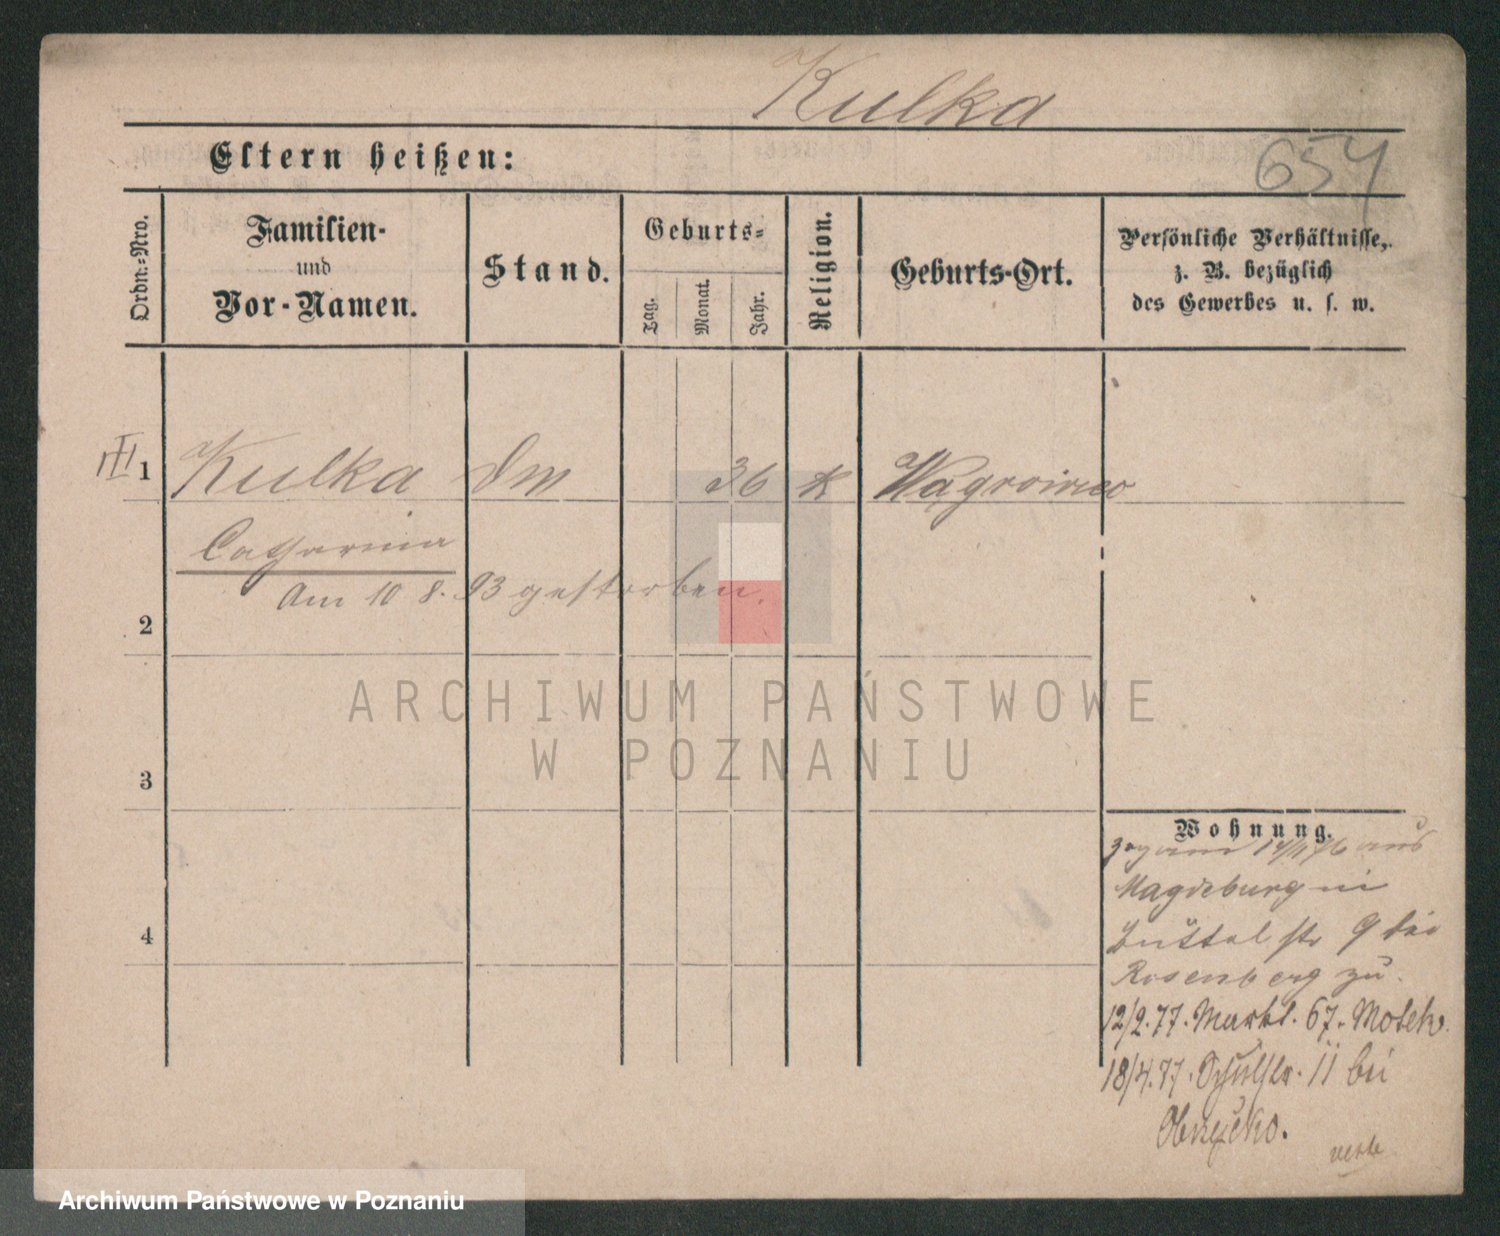 Kulka
654
Eltern heißen:
Ordn.-Nro.
Familien-
und
Vor-Namen.
Stand.
Geburts-
Tag.
Monat.
Jahr.
Religion.
Geburts-Ort.
Persönliche Verhältnisse,
z. B. bezüglich
des Gewerbes u. s. w.
III 1 Kulka Dm 36 k Wagrowiec
Catharina
Am 10 8. 93 gestorben.
2
3
4
Wohnung.
zog am aus
Magdeburg in
str 9 bei
Rosenberg zu
12/2.77. Markt. 67. Motek.
18/4.77. Schulstr. 11 bei
ARCHIWUM PAŃSTWOWE
W POZNANIU
Archiwum Państwowe w Poznaniu